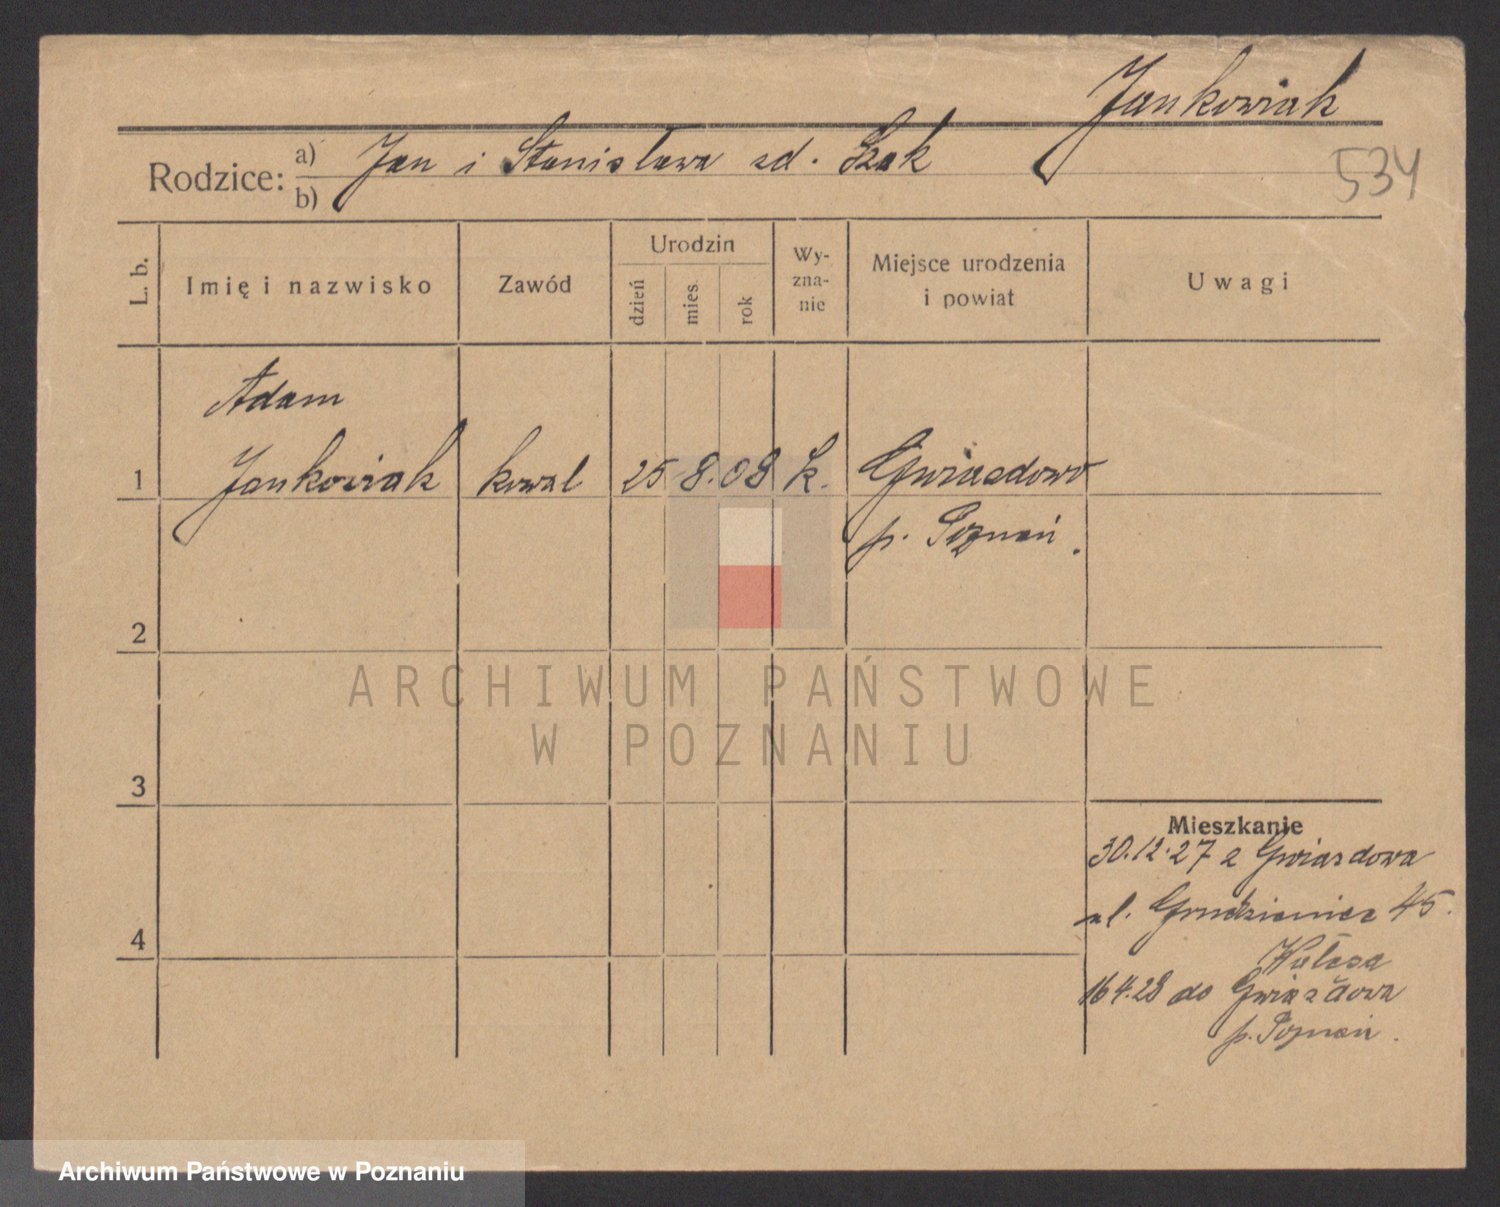 Jankowiak
Rodzice: a) Jan i Stanisława zd. Szak
b)
534
L. b.
Imię i nazwisko
Zawód
Urodzin
dzień
mies.
rok
Wy-
zna-
nie
Miejsce urodzenia
i powiat
Uwagi
Adam
1 Jankowiak kowal 25 8. 08 k. Gwiazdowo
p. Poznań.
2
ARCHIWUM PAŃSTWOWE
W POZNANIU
3
Mieszkanie
30.12.27 z Gwiazdowa
ul. 45.
4
16 4.28 do Gwiazdowa
p. Poznań.
Archiwum Państwowe w Poznaniu